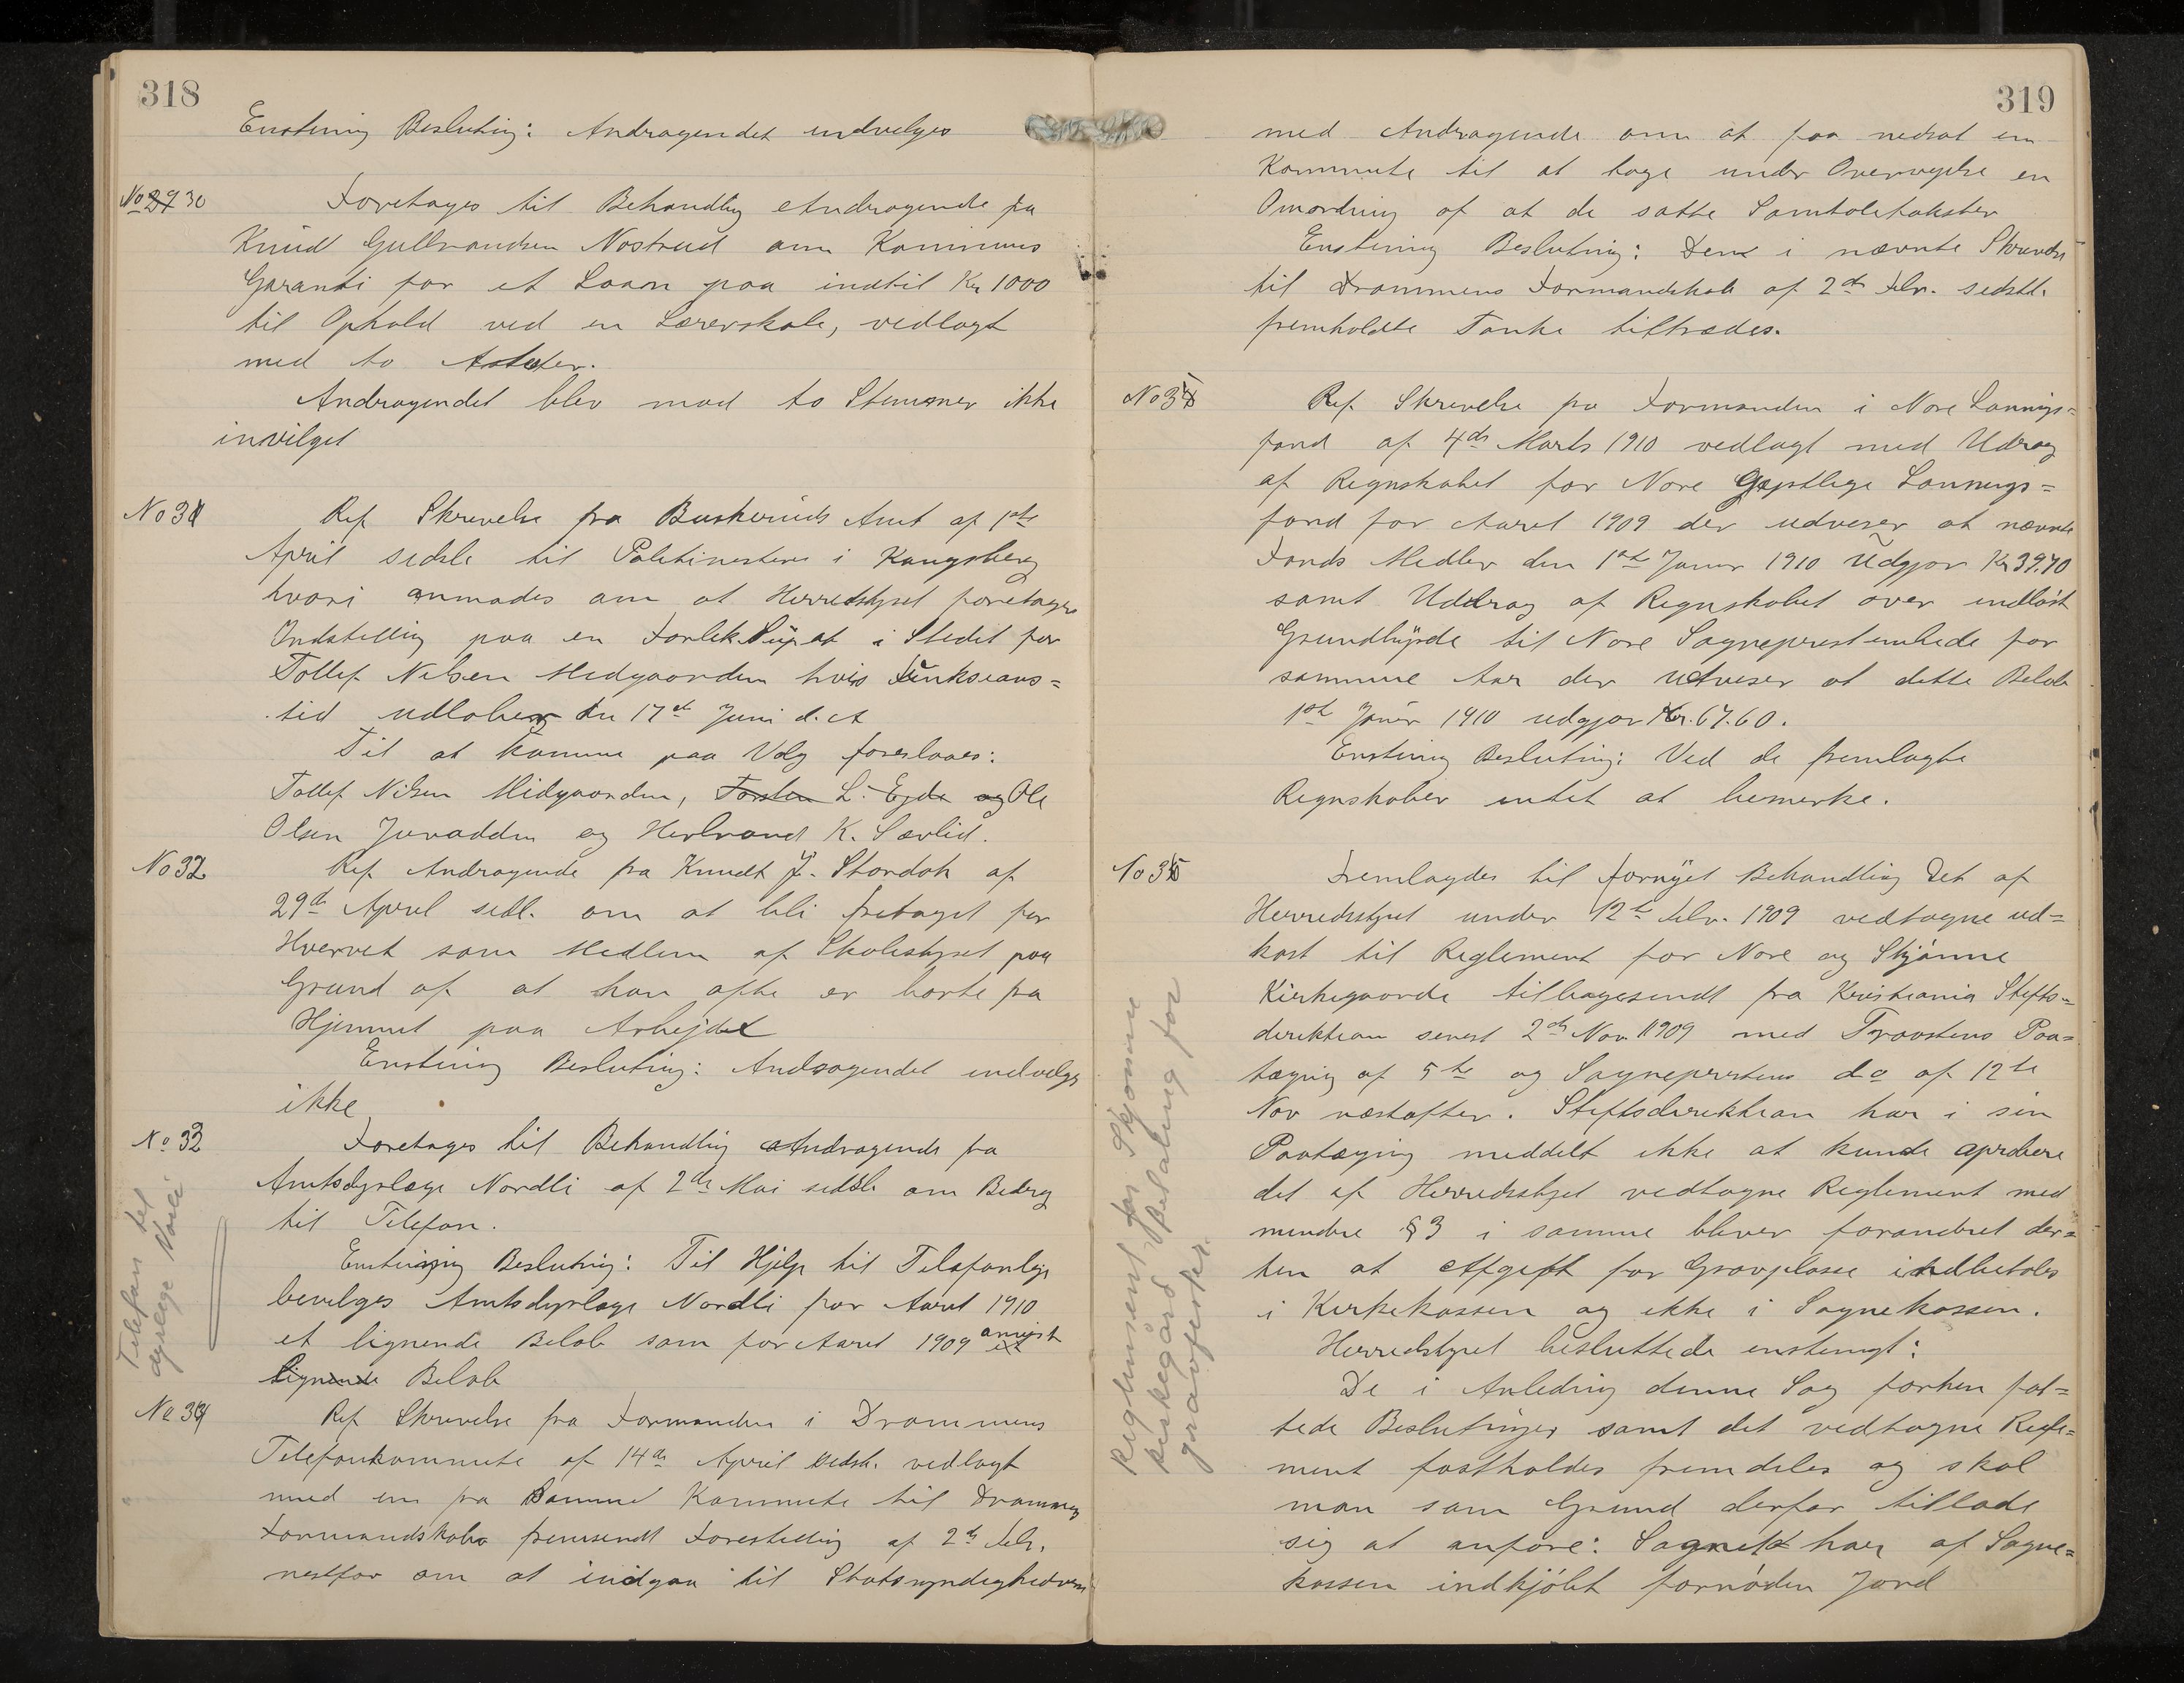 318
Enstemig Beslutnig: Andragendet indvelges
No 30
Foretages til Behandling Andragende fra
Knudt Gulbrandsen Nostrud om Kommuns
Garanti for et Laan paa indtil Kr 1000
til Ophold ved en Lærerskole, vedlagt
med to Attester.
Andragendet blev mod to Stemmer ikke
invilget
No 31
Ref Skrivelse fra Buskeruds Amt af 1ste
April sidstl. til Politimesteren i Kongsberg
hvori anmodes om at Herredstyret foretager
Indstilling paa en Forlik. Supat i Stedet for
Tollef Nilsen Midgaarden hvis Funksions=
tid udlober den 17de Juni d. A
Til at komme paa Valg foreslaaes:
Tollef Nilsen Midgaarden, Torsten L. Eyde og Ole
Olsen Juvadden og Herbrand K. Sævlid.
No 32
Ref Andragende fra Knudt J. Stordok af
29de April sidl. om at bli fritaget for
Hvervet som Medlem af Skolestyret paa
Grund af at han ofte er borte fra
Hjemmet paa Arbejdet
Enstemig Beslutnig: Andragendet indvelges
ikke
No 33
Telefon til
dyrlege Nordli
Foretages til Behandlig Andragende fra
Amtsdyrlæge Nordli af 2de Mai sidstl. om Bidrag
til Telefon.
Enstemig Beslutnig: Til Hjelp til Telefonleje
bevilges Amtsdyrlæge Nordli for Aaret 1910
et lignende Belob som for Aaret 1909
lignende Belob
No 34
Ref Skrivelse fra Formanden i Drammens
Telefonkommite af 14de April sidstl. vedlagt
med en fra Samme Kommite til Drammens
Formandskab fremsendt Forestilling af 2de Febr.
nestfor om at indgaa til Statsmyndighederne
319
med Andragende om at faa nedsat en
Kommite til at tage under Overvejelse en
Omordning af at de satte Samtaletakster
Enstemig Beslutnig: Den i nævnte Skrivelse
til Drammens Formandskab af 2de Febr. sidstl.
fremholdte Tanke tiltrædes.
No 35
Ref. Skrivelse fra Formanden i Nore Lønnings=
fond af 4de Marts 1910 vedlagt med Udrag
af Regnskabet for Nore Gejstlige Lønnings=
fond for Aaret 1909 der udviser at nævnte
Fonds Midler den 1ste Januar 1910 Udgjør Kr 39.70
samt Uddrag af Regnskabet over indløst
Grundbyrde til Nore Sogneprestembede for
samme Aar der udviser at dette Belob
1ste Januar 1910 udgjør Kr. 67.60.
Enstemig Beslutnig: Ved de fremlagte
Regnskaber intet at bemerke.
No 36
Reglement for Skjønne
kirkegård. Betaling for
gravfester.
Fremlagdes til fornyet Behandling Det af
Herredsstyret under 12te Febr. 1909 vedtagne ud=
kast til Reglement for Nore og Skjønne
Kirkegaarde tilbagesendt fra Kristiania Stifts=
direktion senest 2den Nov. 1909 med Provstens Paa=
tegnig af 5te og Sogneprestens do af 12te
Nov næstefter. Stiftsdirektion har i sin
Paategning meddelt ikke at kunde aprobere
det af Herredsstyret vedtagne Reglement med
mindre § 3 i samme bliver forandret der=
hen at Afgift for Gravplasse indbetales
i Kirkekassen og ikke i Sognekassen.
Herredstyret besluttede enstemigt:
De i Anledning denne Sag forhen fat=
tede Beslutninger samt det vedtagne Regle=
ment fastholdes fremdeles og skal
man som Grund derfor tillade
sig at anføre: Sognet har af Sogne=
kassen indkjøbt fornøden Jord